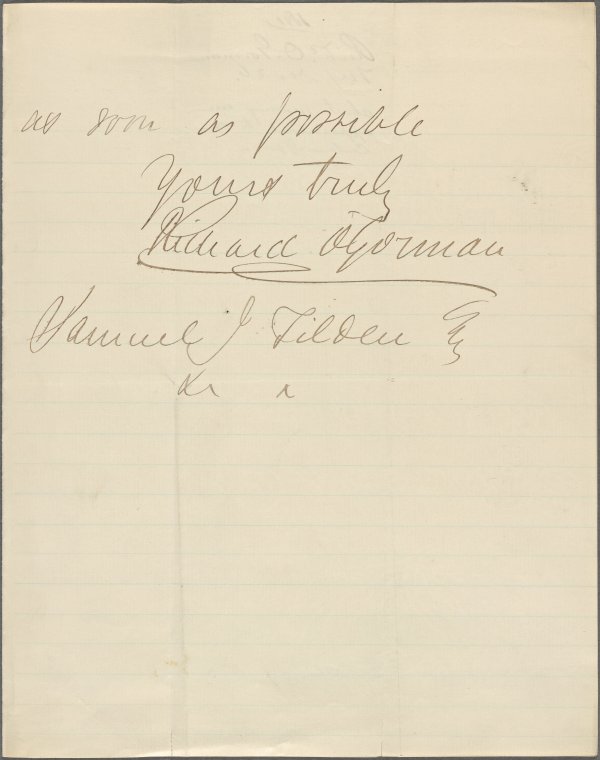 as soon as possible
Yours truly
Richard O'Gorman
Samuel J Tilden Esq